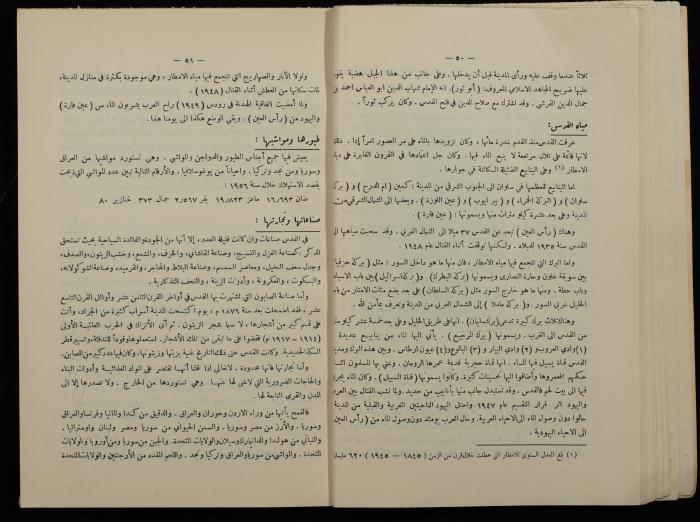 — ٥٠ —
ثلاثاً عندما وقف عليه ورأى المدينة قبل أن يدخلها . وعلى جانب من هذا الجبل هضبة يقوم
عليها ضريح المجاهد الاسلامي المعروف : ( أبو ثور ) . انه الإمام شهاب الدين ابو العباس احمد بن
جمال الدين القرشي . وقد اشترك مع صلاح الدين في فتح القدس . وكان يركب ثوراً .
مياه القدس :
عرفت القدس منذ القدم بندرة مائها ، وكان تزويدها بالماء على مر العصور امراً إدا . ذلك
لانها قائمة على تلال مرتفعة لا ينبع الماء فيها . وكان جل اعتمادها في القرون الغابرة على مياه
الامطار (١) وعلى الينابيع الضئيلة الكائنة في جوارها .
اما الينابيع فمعظمها في سلوان الى الجنوب الشرقي من المدينة : كعين ( ام الدرج ) و ( بركة
سلوان ) و ( البركة الحمراء ) و ( بير ايوب ) و ( عين اللوزة ) . وبعضها الى الشمال الشرقي من
المدينة وعلى بعد عشرة كيلو مترات منها ويسمونها : ( عين فارة ) .
وهناك ( رأس العين ) تبعد عن القدس ٣٧ ميلا الى الشمال الغربي . وقد سحبت مياهها الى
القدس سنة ١٩٣٥ للميلاد . ولكنها توقفت أثناء القتال عام ١٩٤٨
واما البرك التي تتجمع فيها مياه الامطار ، فان منها ما هو داخل السور : مثل ( بركة حزقيا )
بين سويقة علون وحارة النصارى ويسمونها (بركة البطرك) . و( بركة اسرائيل ) بين باب الاسباط
وباب حطة . ومنها ما هو خارج السور مثل ( بركة السلطان ) على بعد بضع مئات الامتار من باب
الخليل غربي السور . و( بركة ماملا ) الى الشمال الغربي من المدينة وتعرف بمأمن الله .
وهناك ثلاث برك كبيرة تدعى ( برك سليمان ) . انها على طريق الخليل وعلى بعد خمسة عشر كيلو متراً
من القدس الى الغرب . ويسمونها ( برك المرجيع ) . يأتي اليها الماء من ينابيع عديدة
(١) وادي العروب و (٢) وادي البيار و (٣) البالوع و(٤) عيون ارطاس . وبين هذه البرك ومدينة
القدس قناة يسيل فيها الماء . انها قناة حجرية قديمة عمرها الرومان . وعني بها المسلمون اثناء
حكمهم فعمروها وأضافوا اليها تحسينات كثيرة وكانوا يسمونها ( قناة السبيل ) . وكان الماء يجري
فيها الى بيت لحم فالقدس . وقد استبدل جانب منها بأنابيب من حديد . ولما نشب القتال بين العرب
واليهود اثر قرار التقسيم عام ١٩٤٧ واحتل اليهود الناحيتين الغربية والقبلية من المدينة
حالوا دون وصول الماء الى الاحياء العربية . وحال العرب يومئذ دون وصول الماء من ( رأس العين )
الى الاحياء اليهودية .
(١) بلغ المعدل السنوي للامطار التي هطلت خلال قرن من الزمن ( ١٨٤٥ — ١٩٤٥ ) ٦٢٠
— ٥١ —
ولولا الآبار والصهاريج التي تتجمع فيها مياه الامطار ، وهي موجودة بكثرة في منازل المدينة،
لمات سكانها من العطش أثناء القتال ( ١٩٤٨ ) .
ولما أمضيت اتفاقية الهدنة في رودس ( ١٩٤٩ ) راح العرب يشربون الماء من ( عين فارة )
واليهود من ( رأس العين ) . وبقي الوضع هكذا الى يومنا هذا .
طيورها ومواشيها :
يعيش فيها جميع أجناس الطيور والدواجن والمواشي . وهي تستورد مواشيها من العراق
وسوريا ومن نجد وتركيا . واحياناً من يوغوسلافيا . والأرقام التالية تبين عدد المواشي التي ذبحت
بقصد الاستهلاك خلال سنة ١٩٥٦ :
ضأن ١٦٫٦٩٣ ماعز ١٩٫٨٢٣ بقر ٢٫٥٦٧ جمال ٣٧٣ خنازير ٨٠
صناعاتها وتجارتها :
في القدس صناعات وان كانت قليلة العدد ، إلا أنها من الجودة والفائدة السياحية بحيث تستحق
الذكر : كصناعة الغزل والنسيج، وصناعة القاشاني، والخزف، والشمع، وخشب الزيتون، والصدف،
وجدل سعف النخيل، ومعاصر السمسم، وصناعة البلاط والمحاجر، والقرميد، وصناعة الشوكولاته،
والبسكوت، والمكرونة، وأدوات الزينة، والتحف التذكارية .
وأما صناعة الصابون التي اشتهرت بها القدس في أواخر القرن الثامن عشر وأوائل القرن التاسع
عشر، فقد اضمحلت بعد سنة ١٨٧٦م ، يوم اكتسحت المدينة أسراب كثيرة من الجراد، وأتت
على قسم كبير من أشجارها، لا سيما شجر الزيتون . ثم أتى الأتراك في الحرب العالمية الأولى
(١٩١٤ — ١٩١٧ م ) فقضوا على ما تبقى من تلك الأشجار. استعملوها وقوداً للتدفئة ولتسيير قطر
السكة الحديدية. وكانت القدس حتى ذلك التاريخ غنية بزيتها وزيتونها، وكان فيها عدد كبير من المصابن.
وأما تجارتها فانها محدودة . لا تتعدى اذا قلنا أنها تقتصر على المواد الغذائية وأدوات البناء
والحاجات الضرورية التي لا غنى لها عنها . وهي تستوردها من الخارج . ولا تصدرها إلا الى
المدن والقرى التابعة لها .
فالقمح يأتيها من وراء الاردن وحوران والعراق . والدقيق من كندا والمانيا وفرنسا والعراق
وسوريا . والأرز من مصر وسوريا . والسمن الحيواني من سوريا ومصر ولبنان واوستراليا .
والنباتي من هولندا والدانيمارك وسيلان والولايات المتحدة. والجبن من سوريا ومن أوروبا والولايات
المتحدة . والمواشي من سوريا والعراق وتركيا ونجد . واللحم المقدد من الأرجنتين والولايات المتحدة